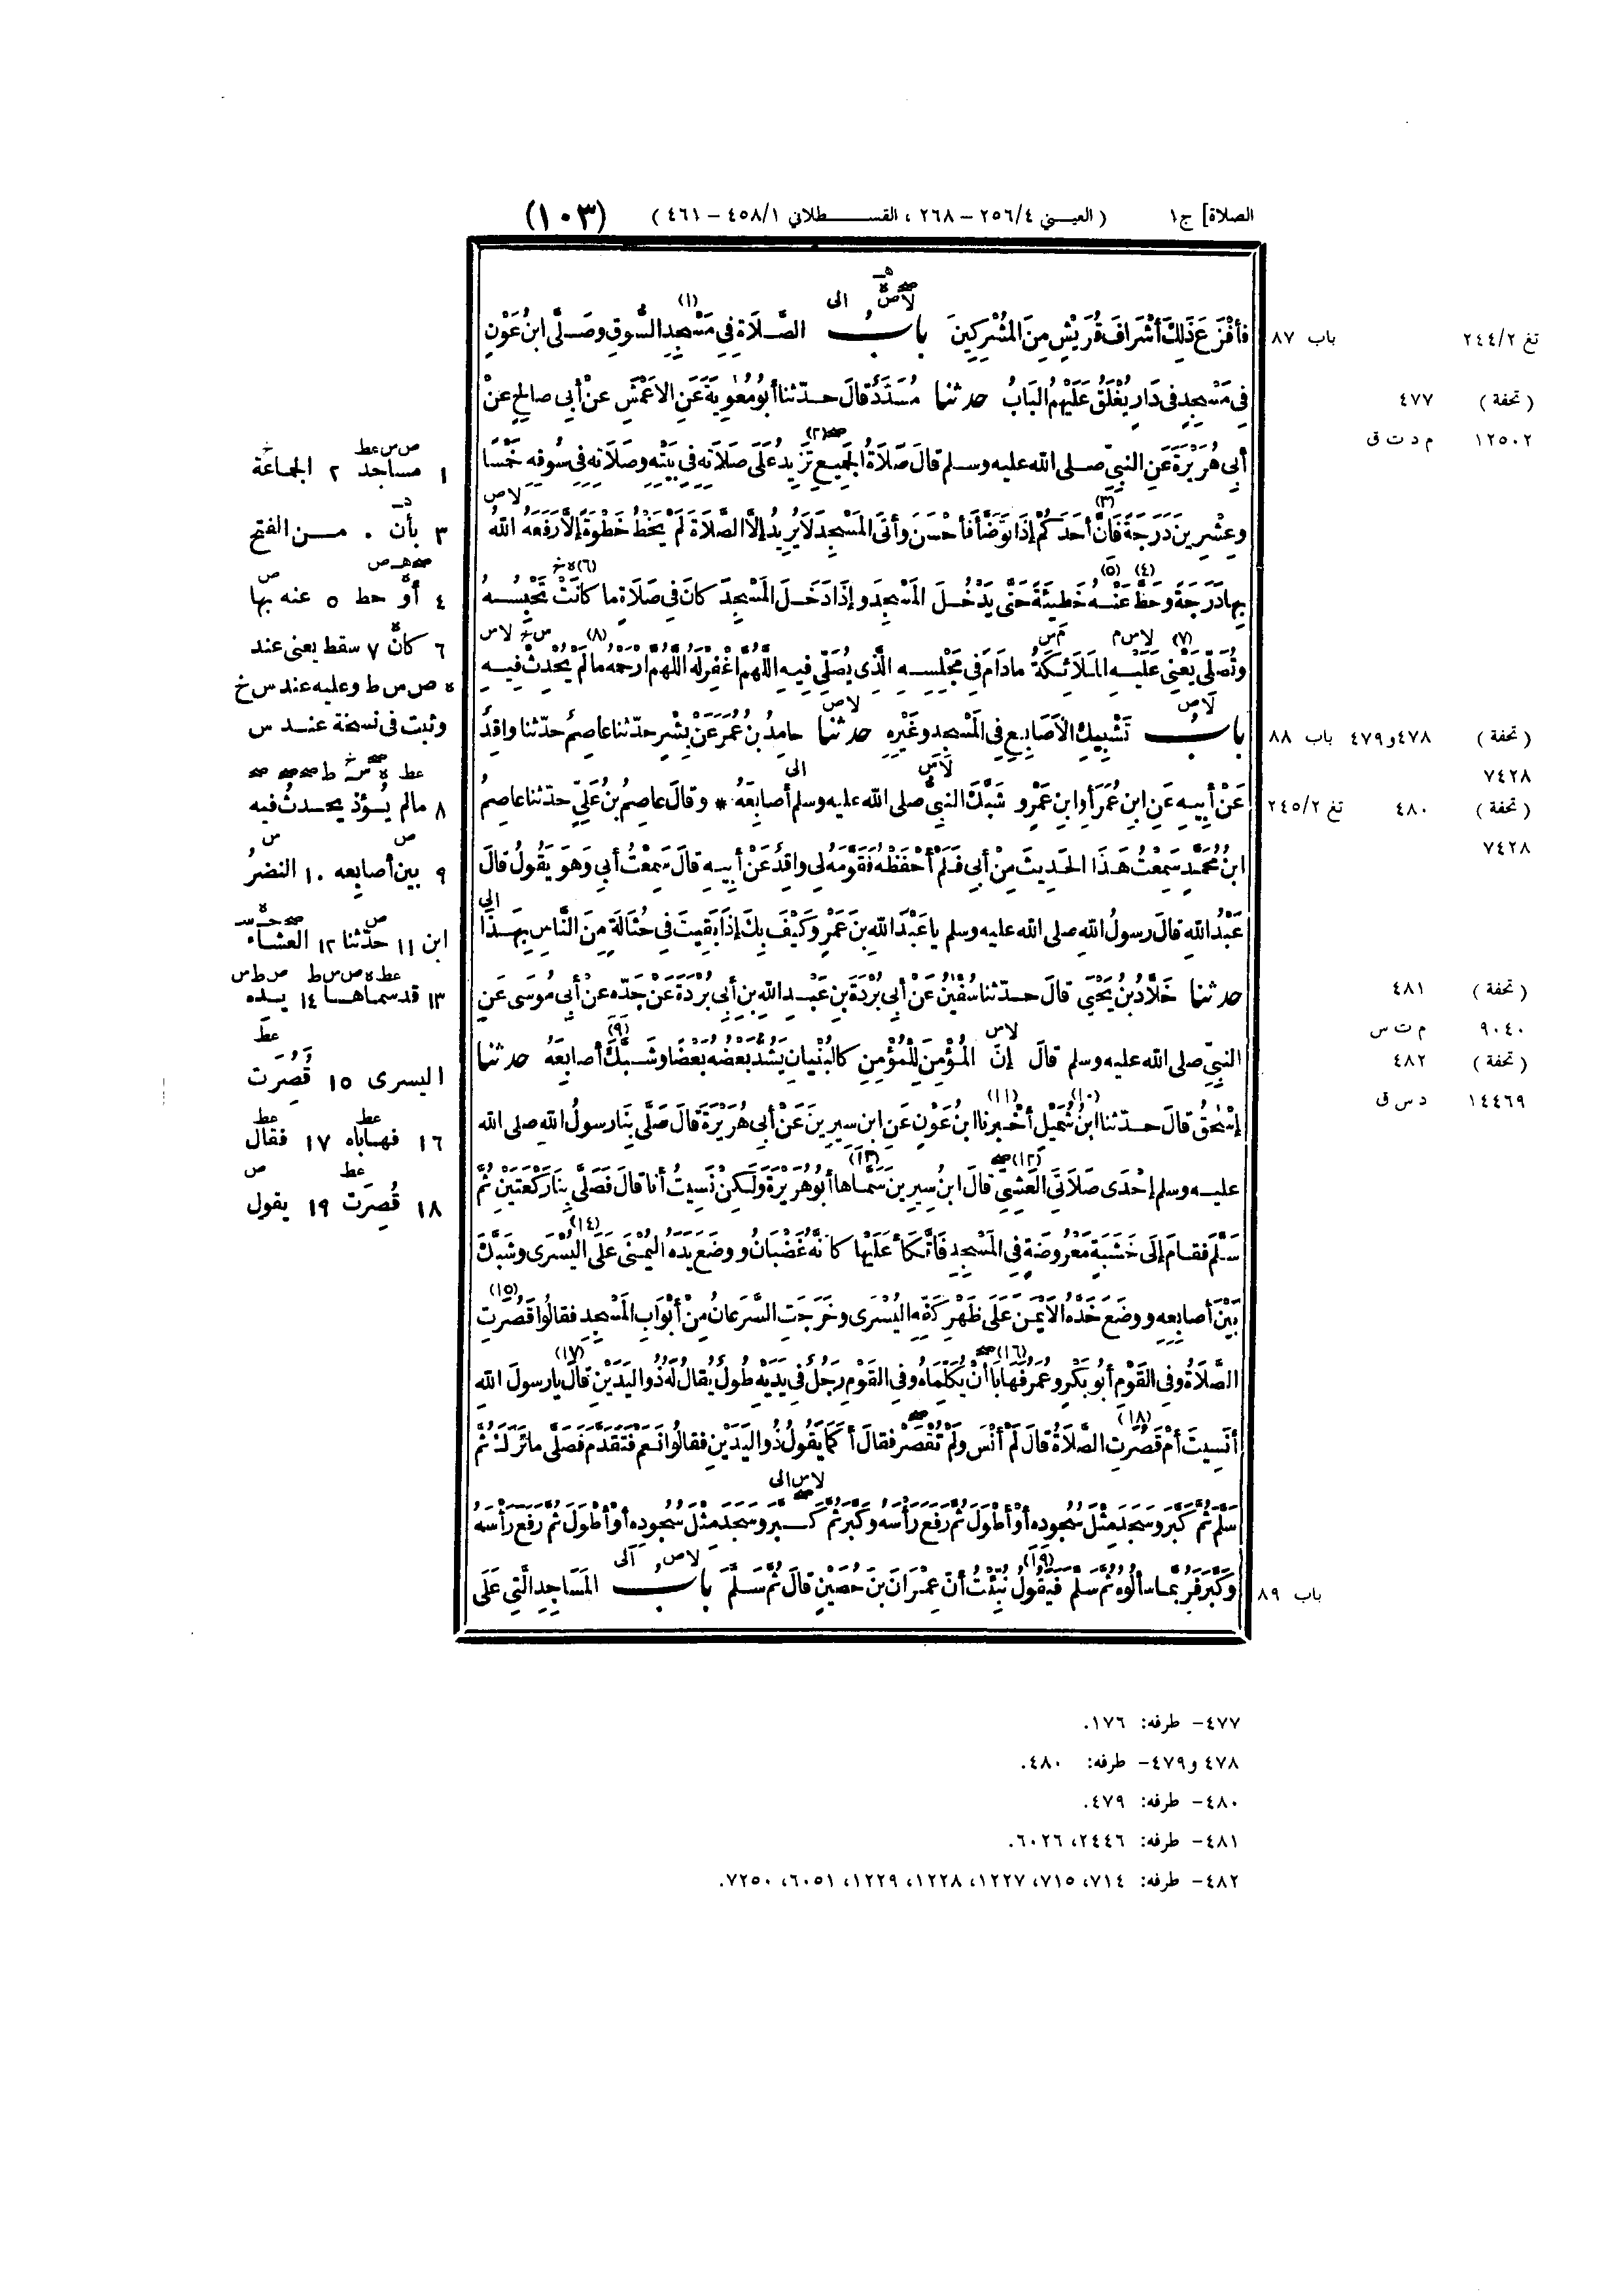 الصلاة] ج١ (العيني ٢٥٦/٤ – ٢٦٨، القسطلاني ٤٥٨/١ – ٤٦١) (١٠٣)
فَأَفْزَعَ ذٰلِكَ أَشْرَافَ قُرَيْشٍ مِنَ المُشْرِكِينَ بابُ الصَّلَاةِ فِي مَسْجِدِ السُّوقِ وصَلَّى ابنُ عَوْنٍ
فِي مَسْجِدٍ فِي دَارٍ يُغْلَقُ عَلَيْهِمُ البَابُ حدثنا مُسَدَّدٌ قالَ حدّثنا أَبُو مُعٰوِيَةَ عَنِ الأَعْمَشِ عَنْ أَبِي صَالِحٍ عَنْ
أَبِي هُرَيْرَةَ عَنِ النبيِّ صلى الله عليه وسلم قالَ صَلَاةُ الجَمِيعِ (٢) تَزِيدُ عَلَى صَلَاتِهِ فِي بَيْتِهِ وصَلَاتِهِ فِي سُوقِهِ خَمْسًا
وعِشْرِينَ دَرَجَةً فَإِنَّ (٣) أَحَدَكُمْ إِذَا تَوَضَّأَ فَأَحْسَنَ وأَتَى المَسْجِدَ لَا يُرِيدُ إِلَّا الصَّلَاةَ لَمْ يَخْطُ خَطْوَةً إِلَّا رَفَعَهُ اللهُ
بِهَا دَرَجَةً وحَطَّ (٤) عَنْهُ (٥) خَطِيئَةً حَتَّى يَدْخُلَ المَسْجِدَ وإِذَا دَخَلَ المَسْجِدَ كانَ فِي صَلَاةٍ ما كَانَتْ (٦) تَحْبِسُهُ
وتُصَلِّي يَعْنِي (٧) عَلَيْهِ المَلَائِكَةُ مادَامَ فِي مَجْلِسِهِ الَّذِي يُصَلِّي فِيهِ اللَّهُمَّ اغْفِرْ لَهُ اللَّهُمَّ ارْحَمْهُ مالَمْ (٨) يُحْدِثْ فِيهِ
بابُ تَشْبِيكِ الأَصَابِعِ فِي المَسْجِدِ وغَيْرِهِ حدثنا حامِدُ بنُ عُمَرَ عَنْ بِشْرٍ حدّثنا عاصِمٌ حدّثنا واقِدٌ
عَنْ أَبِيهِ عَنِ ابنِ عُمَرَ أَوِ ابنِ عَمْرٍو شَبَّكَ النبيُّ صلى الله عليه وسلم أَصابِعَهُ * وقالَ عاصِمُ بنُ عَلِيٍّ حدّثنا عاصِمُ
ابنُ مُحَمَّدٍ سَمِعْتُ هَذَا الحَدِيثَ مِنْ أَبِي فَلَمْ أَحْفَظْهُ فَقَوَّمَهُ لِي واقِدٌ عَنْ أَبِيهِ قالَ سَمِعْتُ أَبِي وَهُوَ يَقُولُ قالَ
عَبْدُ اللهِ قالَ رسولُ الله صلى الله عليه وسلم يا عَبْدَ اللهِ بنَ عَمْرٍو كَيْفَ بِكَ إِذَا بَقِيتَ فِي حُثَالَةٍ مِنَ النَّاسِ بِهَذَا
حدثنا خَلَّادُ بنُ يَحْيَى قالَ حدّثنا سُفْيٰنُ عَنْ أَبِي بُرْدَةَ بنِ عَبْدِ اللهِ بنِ أَبِي بُرْدَةَ عَنْ جَدِّهِ عَنْ أَبِي مُوسَى عَنِ
النبيِّ صلى الله عليه وسلم قالَ إِنَّ المُؤْمِنَ لِلْمُؤْمِنِ كالبُنْيانِ يَشُدُّ بَعْضُهُ بَعْضًا وشَبَّكَ (٩) أَصابِعَهُ حدثنا
إِسْحٰقُ قالَ حدّثنا ابنُ شُمَيْلٍ (١٠) أَخْبرنا (١١) ابنُ عَوْنٍ عَنِ ابنِ سِيرِينَ عَنْ أَبِي هُرَيْرَةَ قالَ صَلَّى بِنَا رسولُ اللهِ صلى الله
عليه وسلم إِحْدَى صَلَاتَيِ العَشِيِّ (١٢) قالَ ابنُ سِيرِينَ سَمَّاها (١٣) أَبُو هُرَيْرَةَ ولَكِنْ نَسِيتُ أَنا قالَ فَصَلَّى بِنَا رَكْعَتَيْنِ ثُمَّ
سَلَّمَ فقامَ إِلَى خَشَبَةٍ مَعْرُوضَةٍ فِي المَسْجِدِ فَاتَّكَأَ عَلَيْها كَأَنَّهُ غَضْبَانُ ووضَعَ يَدَهُ اليُمْنَى عَلَى (١٤) اليُسْرَى وشَبَّكَ
بَيْنَ أَصابِعِهِ ووضَعَ خَدَّهُ الأَيْمَنَ عَلَى ظَهْرِ كَفِّهِ اليُسْرَى وخَرَجَتِ السَّرَعانُ مِنْ أَبْوَابِ المَسْجِدِ فقالُوا قَصُرَتِ (١٥)
الصَّلَاةُ وفِي القَوْمِ أَبُو بَكْرٍ وعُمَرُ فَهَابَا (١٦) أَنْ يُكَلِّمَاهُ وفِي القَوْمِ رَجُلٌ فِي يَدَيْهِ طُولٌ يُقالُ لَهُ ذُو اليَدَيْنِ قالَ (١٧) يا رسولَ اللهِ
أَنَسِيتَ أَمْ قَصُرَتِ (١٨) الصَّلَاةُ قالَ لَمْ أَنْسَ ولَمْ تُقْصَرْ فقالَ أَكَما يَقُولُ ذُو اليَدَيْنِ فقالُوا نَعَمْ فَتَقَدَّمَ فَصَلَّى ما تَرَكَ ثُمَّ
سَلَّمَ ثُمَّ كَبَّرَ وسَجَدَ مِثْلَ سُجُودِهِ أَوْ أَطْوَلَ ثُمَّ رَفَعَ رَأْسَهُ وكَبَّرَ ثُمَّ كَبَّرَ وسَجَدَ مِثْلَ سُجُودِهِ أَوْ أَطْوَلَ ثُمَّ رَفَعَ رَأْسَهُ
وكَبَّرَ فَرُبَّما سأَلُوهُ ثُمَّ سَلَّمَ فَيَقُولُ (١٩) نُبِّئْتُ أَنَّ عِمْرَانَ بنَ حُصَيْنٍ قالَ ثُمَّ سَلَّمَ بابُ المَسَاجِدِ الَّتِي عَلَى
باب ٨٧ تغ ٢٤٤/٢
٤٧٧ (تحفة)
م د ت ق ١٢٥٠٢
باب ٨٨ ٤٧٨ و٤٧٩ (تحفة)
٧٤٢٨
تغ ٢٤٥/٢ ٤٨٠ (تحفة)
٧٤٢٨
٤٨١ (تحفة)
م ت س ٩٠٤٠
٤٨٢ (تحفة)
د س ق ١٤٤٦٩
باب ٨٩
١ مساجد ٢ الجماعة
٣ بأن . من الفتح
٤ أو حط ٥ عنه بها
٦ كان ٧ سقط يعني عند
ه ص س ط وعليه عند س خ
وثبت في نسخة عند س
٨ مالم يُؤذ يحدثُ فيه
٩ بين أصابعه ١٠ النضرُ
ابن ١١ حدّثنا ١٢ العشاء
١٣ قد سماها ١٤ يده
اليسرى ١٥ قُصِرَت
١٦ فهاباه ١٧ فقال
١٨ قُصِرَت ١٩ يقول
٤٧٧– طرفه: ١٧٦.
٤٧٨ و٤٧٩– طرفه: ٤٨٠.
٤٨٠– طرفه: ٤٧٩.
٤٨١– طرفه: ٢٤٤٦، ٦٠٢٦.
٤٨٢– طرفه: ٧١٤، ٧١٥، ١٢٢٧، ١٢٢٨، ١٢٢٩، ٦٠٥١، ٧٢٥٠.